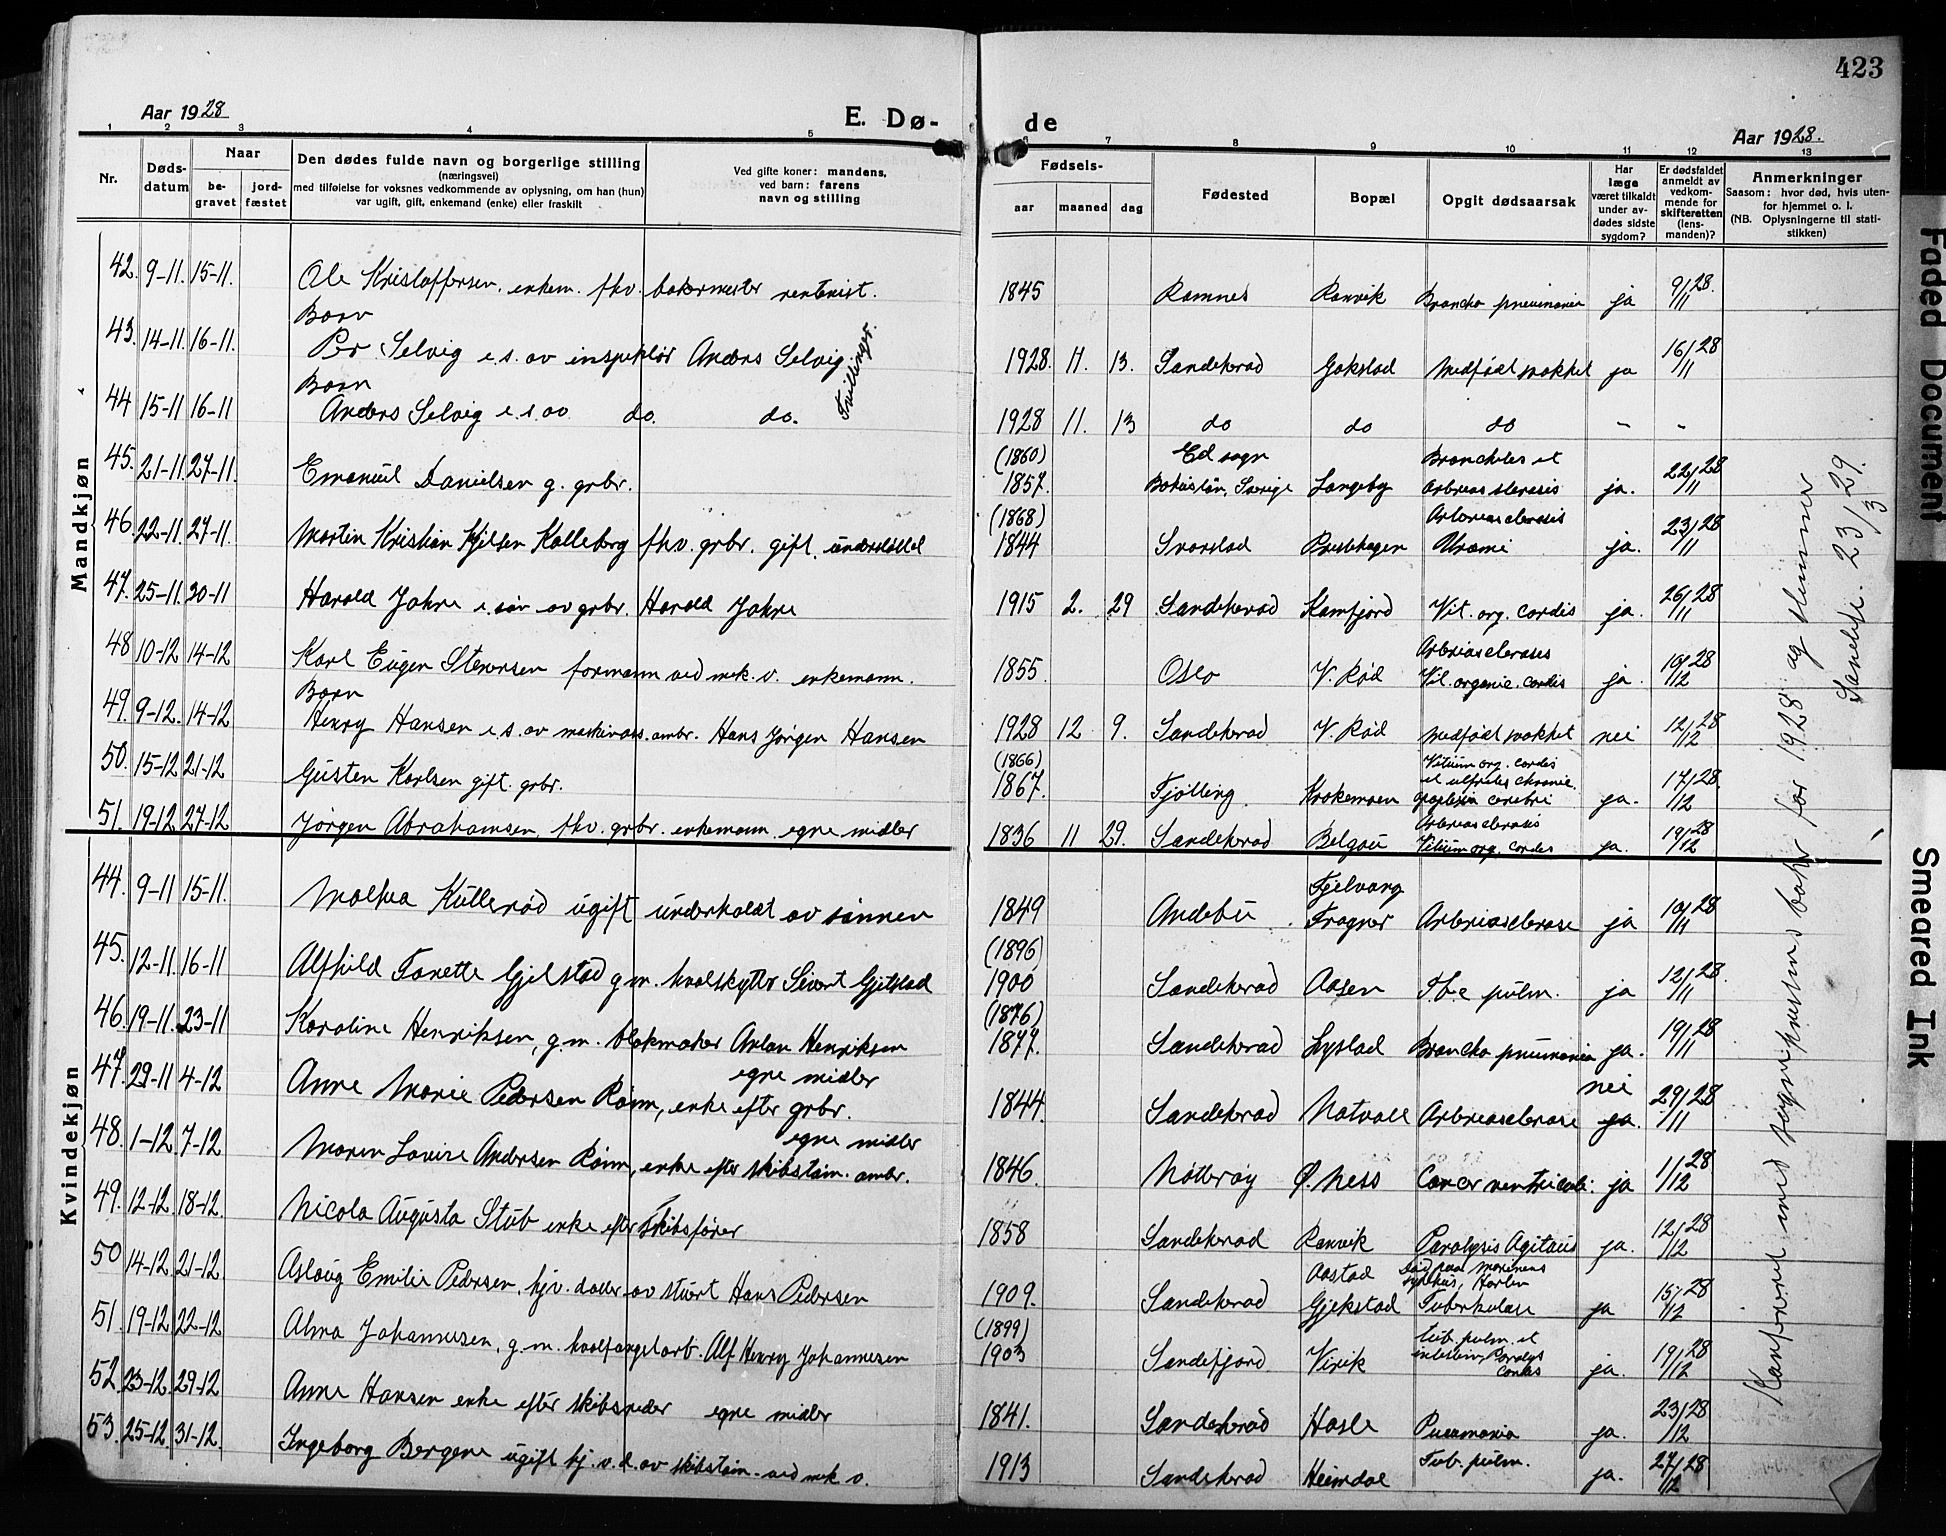 423
Aar 1928
E. Dø-
de
Aar 1928.
1 2 3 4 5 6 7 8 9 10 11 12 13
Nr.
Døds-
datum
Naar
be-
gravet
jord-
fæstet
Den dødes fulde navn og borgerlige stilling
(næringsvei)
med tilføielse for voksnes vedkommende av oplysning, om han (hun)
var ugift, gift, enkemand (enke) eller fraskilt
Ved gifte koner: mandens,
ved barn: farens
navn og stilling
Fødsels-
aar maaned dag
Fødested
Bopæl
Opgit dødsaarsak
Har
læge
været tilkaldt
under av-
dødes sidste
sygdom?
Er dødsfaldet
anmeldt av
vedkom-
mende for
skifteretten
(lens-
manden)?
Anmerkninger
Saasom: hvor død, hvis uten-
for hjemmet o. l.
(NB. Oplysningerne til stati-
stikken)
Mandkjøn
42. 9-11. 15-11. Ole Kristoffersen, enkem. fhv. bakermester rentenist. 1845 Ramnes Ranvik Broncho pneumonia ja 9/11 28.
Barn
43. 14-11. 16-11. Per Selvig e.s. av inspektør Anders Selvig 1928. 11. 13. Sandeherad Gokstad Medfødt svakhet ja 16/11 28
Tvillinger.
Barn
44 15-11 16-11 Anders Selvig e.s. av do. do. 1928 11. 13 do do do " "
45. 21-11. 27-11. Emanuel Danielsen g. grbr. (1860) 1857. Ed sogn Bohuslän, Sverige Langeby Bronchites et Arterias sclerosis ja. 22/11 28
46. 22-11. 27-11. Martin Kristian Kjelsen Kalleberg fhv. grbr. gift understøttet (1868) 1844 Svarstad Prestehagen Arteriosclerosis Uræmi ja. 23/11 28
47. 25-11. 30-11 Harald Jahre e. søn av grbr. Harald Jahre 1915 2. 29 Sandeherad Kamfjord Vit. org. cordis ja. 26/11 28
48 10-12 14-12 Karl Eugen Steversen formann ved mek. v. enkemann. 1855. Oslo V. Rød Arteriosclerosis Vit. organic. cordis ja. 10/12 28
Barn
49. 9-12. 14-12 Henry Hansen e.s. av maskinass. ambr. Hans Jørgen Hansen 1928 12 9. Sandeherad V. Rød Medfødt svakhet nei 12/12 28
50. 15-12 21-12 Gusten Karlsen gift. grbr. (1866) 1867. Tjølling Krokemoen Vitium org. cordis apoplexia cerebri ja. 17/12 28.
51. 19-12 27-12 Jørgen Abrahamsen fhv. grbr. enkemann egne midler 1836 11 29. Sandeherad Belgau Arteriosclerosis Vitium org. cordis ja. 19/12 28
Kvindekjøn
44. 9-11 15-11. Mathea Kullerød ugift underholdt av sønnen 1849 Andebu Fjelvang Fragner Arteriosclerose ja 10/11 28
45. 12-11. 16-11 Alfhild Tonette Gjelstad g.m. hvalskytter Sivert Gjelstad (1896) 1900 Sandeherad Aasen Tbc pulm. ja 12/11 28.
46. 19-11. 23-11 Karoline Henriksen, g.m. blokmaker Anton Henriksen (1876) 1877. Sandeherad Lystad Broncho pneumonia ja. 19/11 28
47. 29-11 4-12 Anne Marie Pedersen Rønn, enke efter grbr. egne midler 1844. Sandeherad Natvall Arteriosclerose nei ja. 29/11 28
48. 1-12. 7-12 Maren Lovise Andersen Rønn, enke efter skibstøm. ambr. egne midler 1846. Nøtterøy Ø. Ness Cancer ventriculi. ja 1/12 28
49. 12-12. 18-12. Nicola Augusta Stub enke efter Skibsfører 1858 Sandeherad Ranvik Paralysis Agitans ja. 12/12 28
50 14-12. 21-12. Aslaug Emilie Pedersen, hjv. datter av stuert Hans Pedersen 1909. Sandeherad Aastad Gjekstad Død paa Morenens sykehus, Horten Tuberkulose ja 15/12 28
51. 19-12 22-12 Alma Johannesen, g.m. hvalfangstarb. Alf Henry Johannesen (1899) 1903 Sandefjord Virik tub. pulm. et intestin, Paralys cordis ja. 19/12 28
52 23-12. 29-12 Anne Hansen enke efter skibsreder egne midler 1841. Sandeherad Hasle Pneumonia ja. 23/12 28
53. 25-12 31-12. Ingeborg Bergene ugift hj. v. d. av skibstøm. ved mek v. 1913 Sandeherad Heimdal Tub. pulm. ja. 27/12 28
Konferert med sogneprestens bok for 1928 og stemmer
Sandefj. 23/3 29.
Faded Document
Smeared Ink